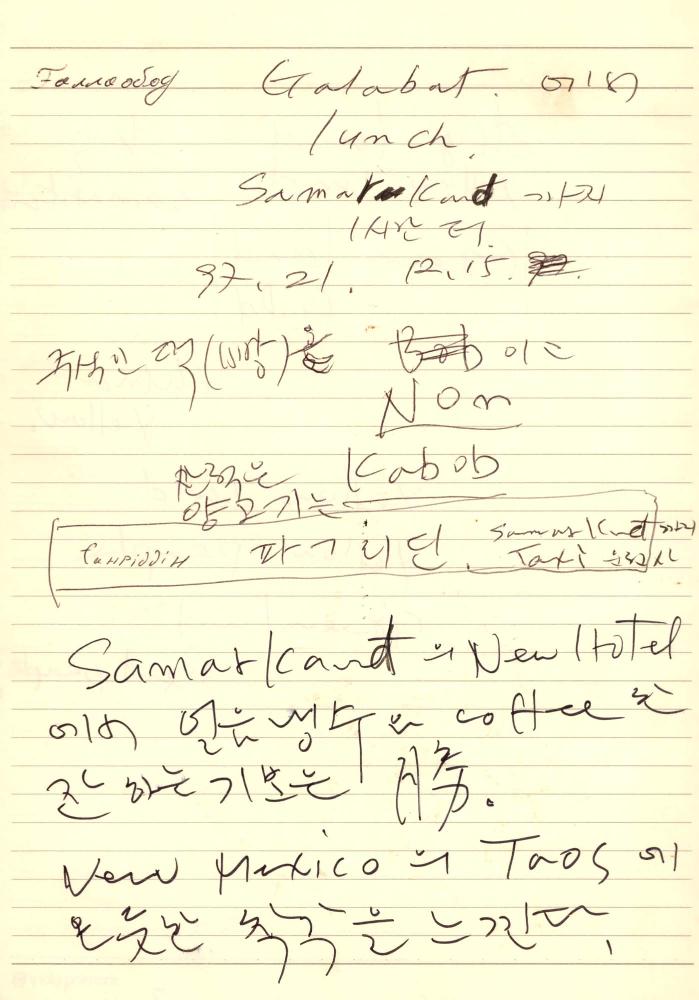 Галлаобод Galabat. 에서
lunch.
Samarkand 까지
1시간 더.
97. 21. 12.15.
주식인 떡(빵)을 이는
Non
Kabob
양고기는
파그리딘. Samarkand까지
Taxi 운전사
Samarkand의 New Hotel
에서 얼음냉수와 coffee 한
잔 하는 기분은 勝.
New Mexico의 Taos에
온 듯한 착각을 느낀다.